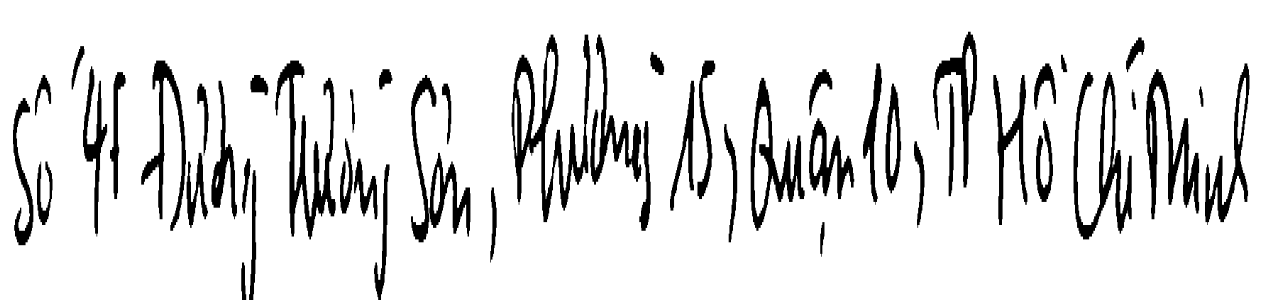 Số 47 Đường Trường Sơn, Phường 15, Quận 10, TP Hồ Chí Minh